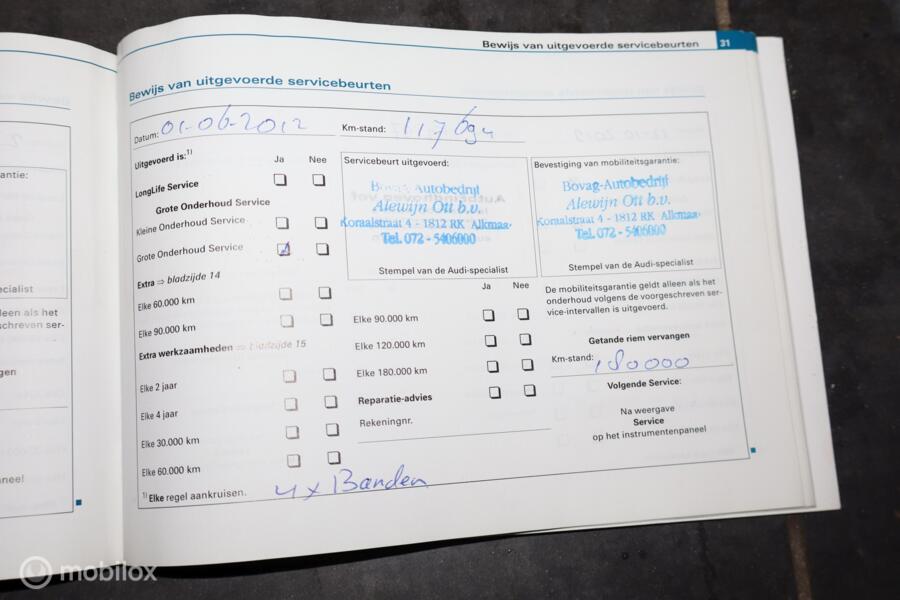 Bewijs van uitgevoerde servicebeurten 31
Bewijs van uitgevoerde servicebeurten
Datum: 01-06-2012 Km-stand: 117
Uitgevoerd is:1) Ja Nee
LongLife Service
Grote Onderhoud Service
Kleine Onderhoud Service
Grote Onderhoud Service
Extra ⇒ bladzijde 14
Elke 60.000 km
Elke 90.000 km
Extra werkzaamheden ⇒ bladzijde 15
Elke 2 jaar
Elke 4 jaar
Elke 30.000 km
Elke 60.000 km
1) Elke regel aankruisen.
4 x Banden
Servicebeurt uitgevoerd:
Bovag-Autobedrijf
Alewijn Ott b.v.
Koraalstraat 4 - 1812 RK Alkmaar
Tel. 072 - 5406000
Stempel van de Audi-specialist
Ja Nee
Elke 90.000 km
Elke 120.000 km
Elke 180.000 km
Reparatie-advies
Rekeningnr.
Bevestiging van mobiliteitsgarantie:
Bovag-Autobedrijf
Alewijn Ott b.v.
Koraalstraat 4 - 1812 RK Alkmaar
Tel. 072 - 5406000
Stempel van de Audi-specialist
De mobiliteitsgarantie geldt alleen als het
onderhoud volgens de voorgeschreven ser-
vice-intervallen is uitgevoerd.
Getande riem vervangen
Km-stand: 180000
Volgende Service:
Na weergave
Service
op het instrumentenpaneel
mobilox